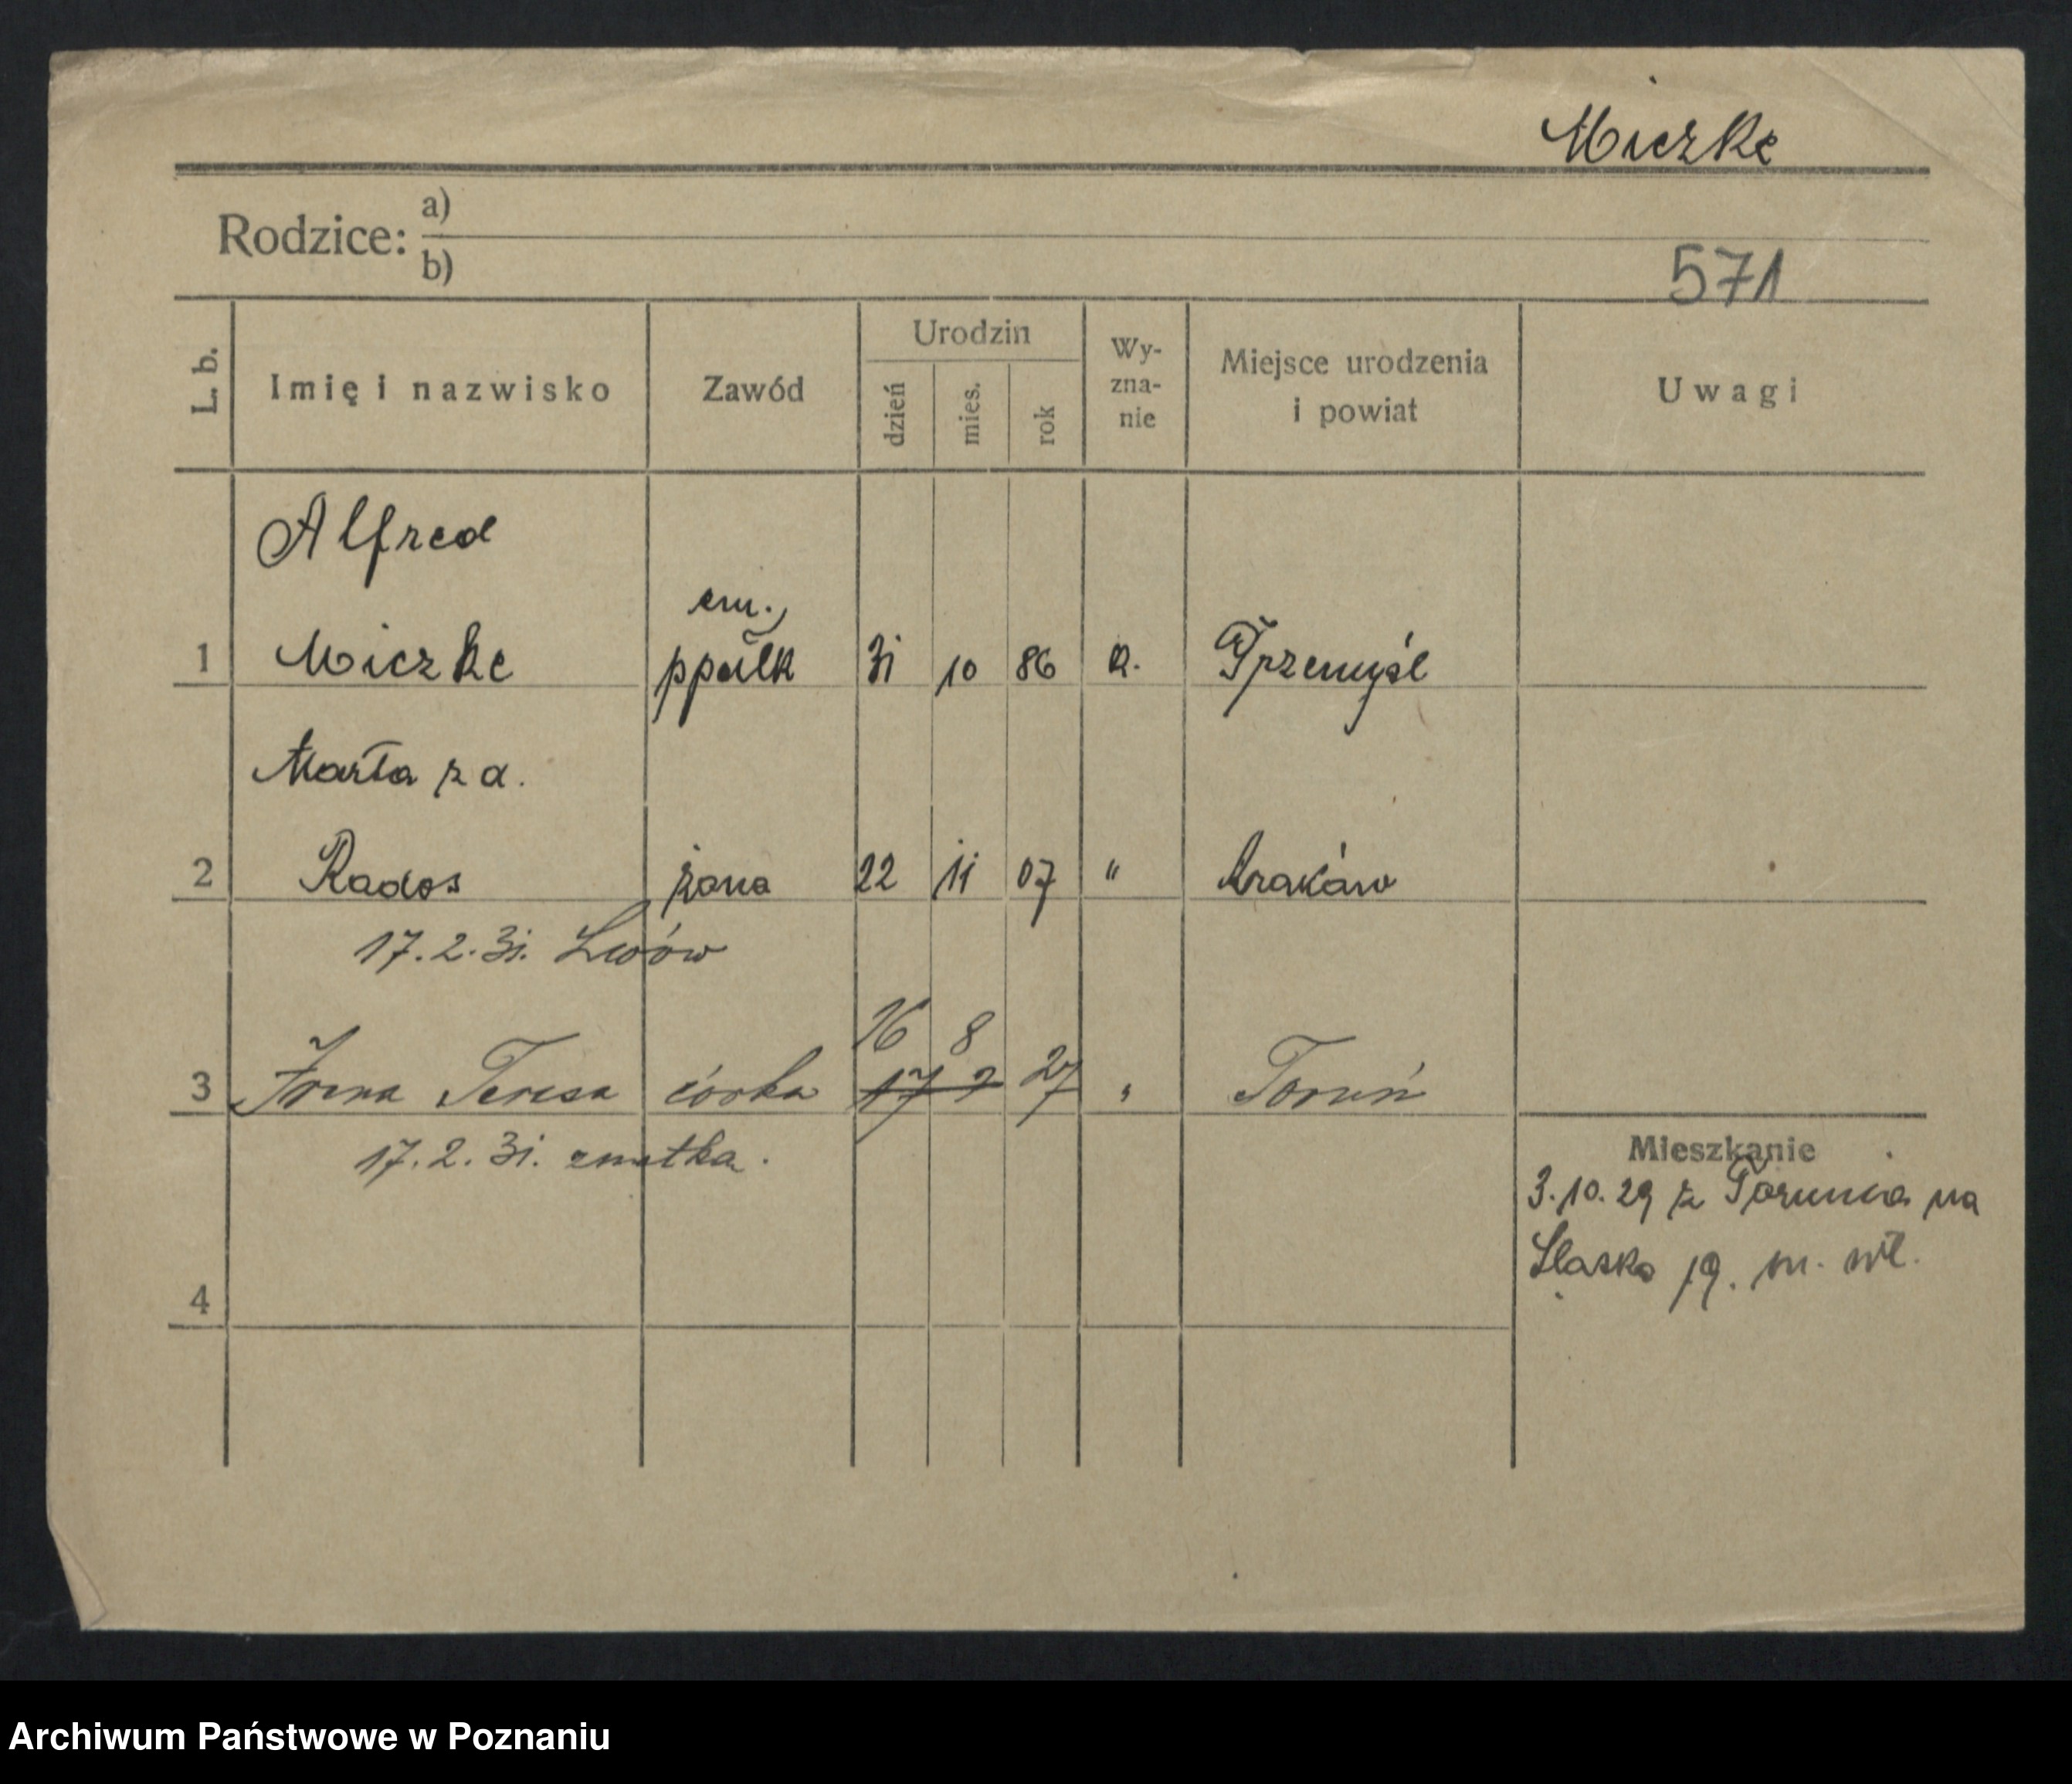 Miczke
Rodzice: a)
b)
571
L. b. Imię i nazwisko Zawód Urodzin dzień mies. rok Wyznanie Miejsce urodzenia i powiat Uwagi
Alfred
em.
1 Miczke ppułk 31 10 86 R. Przemyśl
Marta z d.
2 Rados żona 22 11 07 " Kraków
17.2.31. Lwów
16 8
3 Irena Teresa córka 17 2 27 " Toruń
17.2.31. z matką.
Mieszkanie
3.10.29 z Torunia na
Śląska 19. m. wł.
4
Archiwum Państwowe w Poznaniu